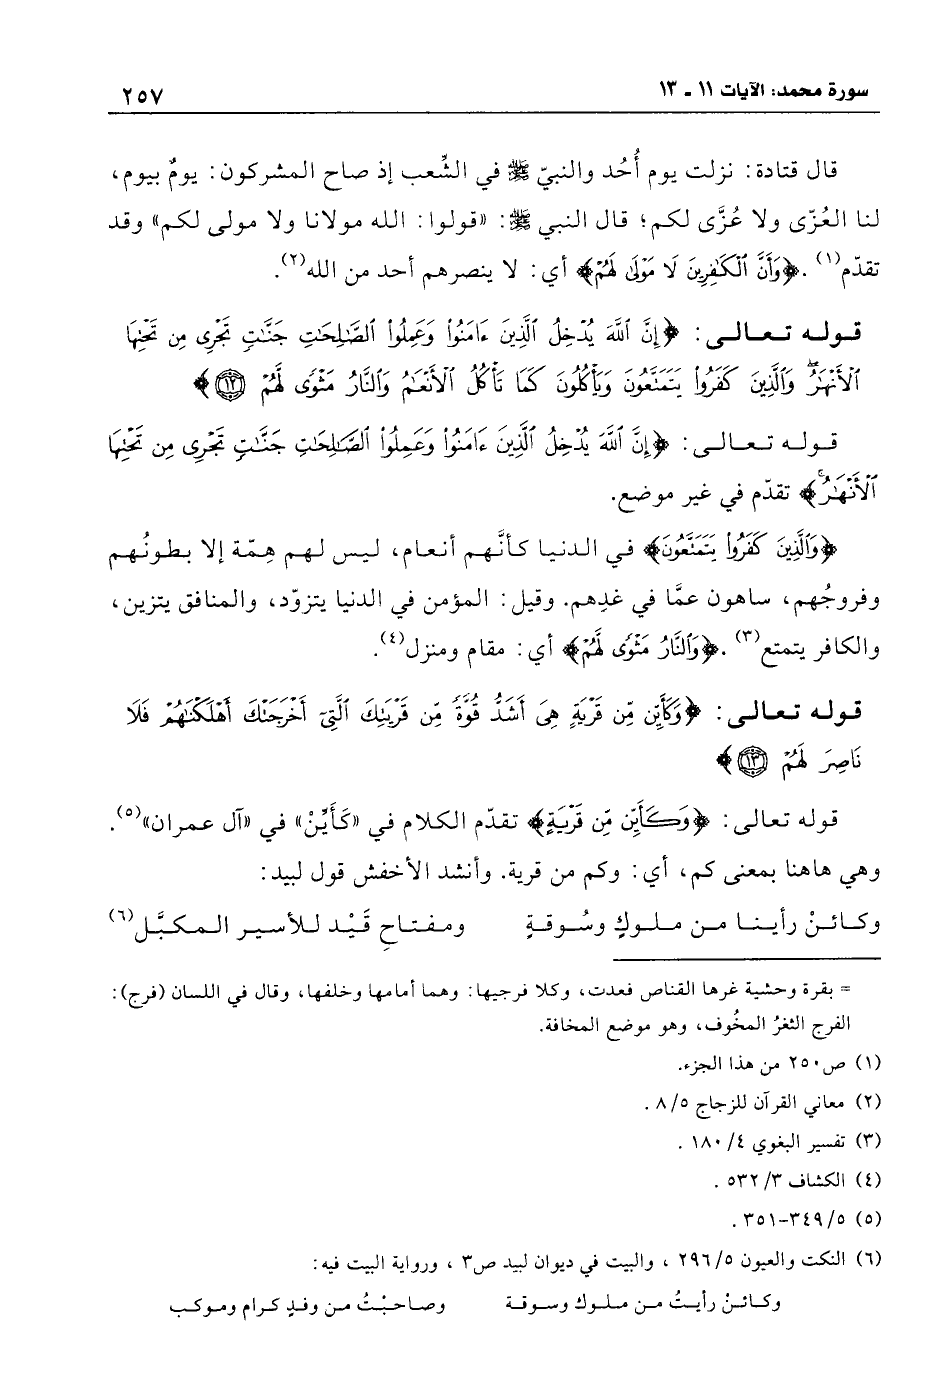 سورة محمد: الآيات ١١ - ١٣ ٢٥٧
قال قتادة: نزلت يوم أُحُد والنبيّ ﷺ في الشِّعب إذ صاح المشركون: يومٌ بيوم،
لنا العُزّى ولا عُزَّى لكم؛ قال النبي ﷺ: «قولوا: الله مولانا ولا مولى لكم» وقد
تقدّم(١). ﴿وَأَنَّ ٱلْكَٰفِرِينَ لَا مَوْلَىٰ لَهُمْ﴾ أي: لا ينصرهم أحد من الله(٢).
قوله تعالى: ﴿إِنَّ ٱللَّهَ يُدْخِلُ ٱلَّذِينَ ءَامَنُوا۟ وَعَمِلُوا۟ ٱلصَّٰلِحَٰتِ جَنَّٰتٍ تَجْرِى مِن تَحْتِهَا
ٱلْأَنْهَٰرُ ۖ وَٱلَّذِينَ كَفَرُوا۟ يَتَمَتَّعُونَ وَيَأْكُلُونَ كَمَا تَأْكُلُ ٱلْأَنْعَٰمُ وَٱلنَّارُ مَثْوًى لَّهُمْ ١٢﴾
قوله تعالى: ﴿إِنَّ ٱللَّهَ يُدْخِلُ ٱلَّذِينَ ءَامَنُوا۟ وَعَمِلُوا۟ ٱلصَّٰلِحَٰتِ جَنَّٰتٍ تَجْرِى مِن تَحْتِهَا
ٱلْأَنْهَٰرُ ۚ﴾ تقدّم في غير موضع.
﴿وَٱلَّذِينَ كَفَرُوا۟ يَتَمَتَّعُونَ﴾ في الدنيا كأنَّهم أنعام، ليس لهم هِمّة إلا بطونُهم
وفروجُهم، ساهون عمَّا في غدِهم. وقيل: المؤمن في الدنيا يتزوّد، والمنافق يتزين،
والكافر يتمتع(٣). ﴿وَٱلنَّارُ مَثْوًى لَّهُمْ﴾ أي: مقام ومنزل(٤).
قوله تعالى: ﴿وَكَأَيِّن مِّن قَرْيَةٍ هِىَ أَشَدُّ قُوَّةً مِّن قَرْيَتِكَ ٱلَّتِىٓ أَخْرَجَتْكَ أَهْلَكْنَٰهُمْ فَلَا
نَاصِرَ لَهُمْ ١٣﴾
قوله تعالى: ﴿وَكَأَيِّن مِّن قَرْيَةٍ﴾ تقدّم الكلام في «كَأَيِّنْ» في «آل عمران»(٥).
وهي هاهنا بمعنى كم، أي: وكم من قرية. وأنشد الأخفش قول لبيد:
وكائنْ رأينا من ملوكٍ وسُوقةٍ ومفتاحِ قَيْد للأسير المكبَّل(٦)
= بقرة وحشية غرها القناص فعدت، وكلا فرجيها: وهما أمامها وخلفها، وقال في اللسان (فرج):
الفرج الثغرُ المخُوف، وهو موضع المخافة.
(١) ص٢٥٠ من هذا الجزء.
(٢) معاني القرآن للزجاج ٨/٥ .
(٣) تفسير البغوي ٤/ ١٨٠ .
(٤) الكشاف ٣/ ٥٣٢ .
(٥) ٥/ ٣٤٩-٣٥١ .
(٦) النكت والعيون ٢٩٦/٥ ، والبيت في ديوان لبيد ص٣ ، ورواية البيت فيه:
وكائنْ رأيتُ من ملوك وسوقة وصاحبْتُ من وفدٍ كرام وموكب